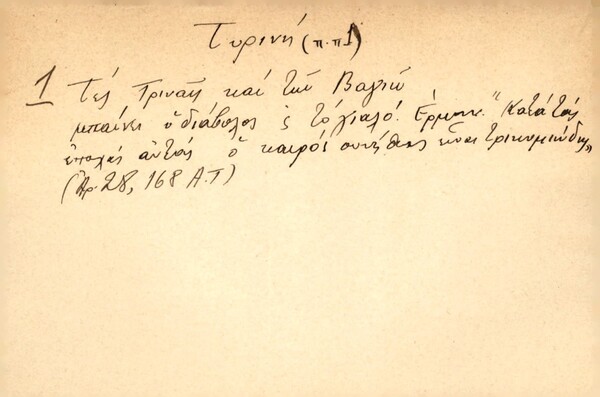 Τυρινή (π.π1)
1 Τσ̀ Τρινής καί τῶν Βαγιῶ
μπαίνει ὁ διάβολος ς τὸ γιαλό. Ἑρμην. "Κατά τάς
ἐποχάς αὐτάς ὁ καιρός συνήθως εἶναι τρικυμιώδης"
(Ἀρ. 28, 168 Α.Τ)